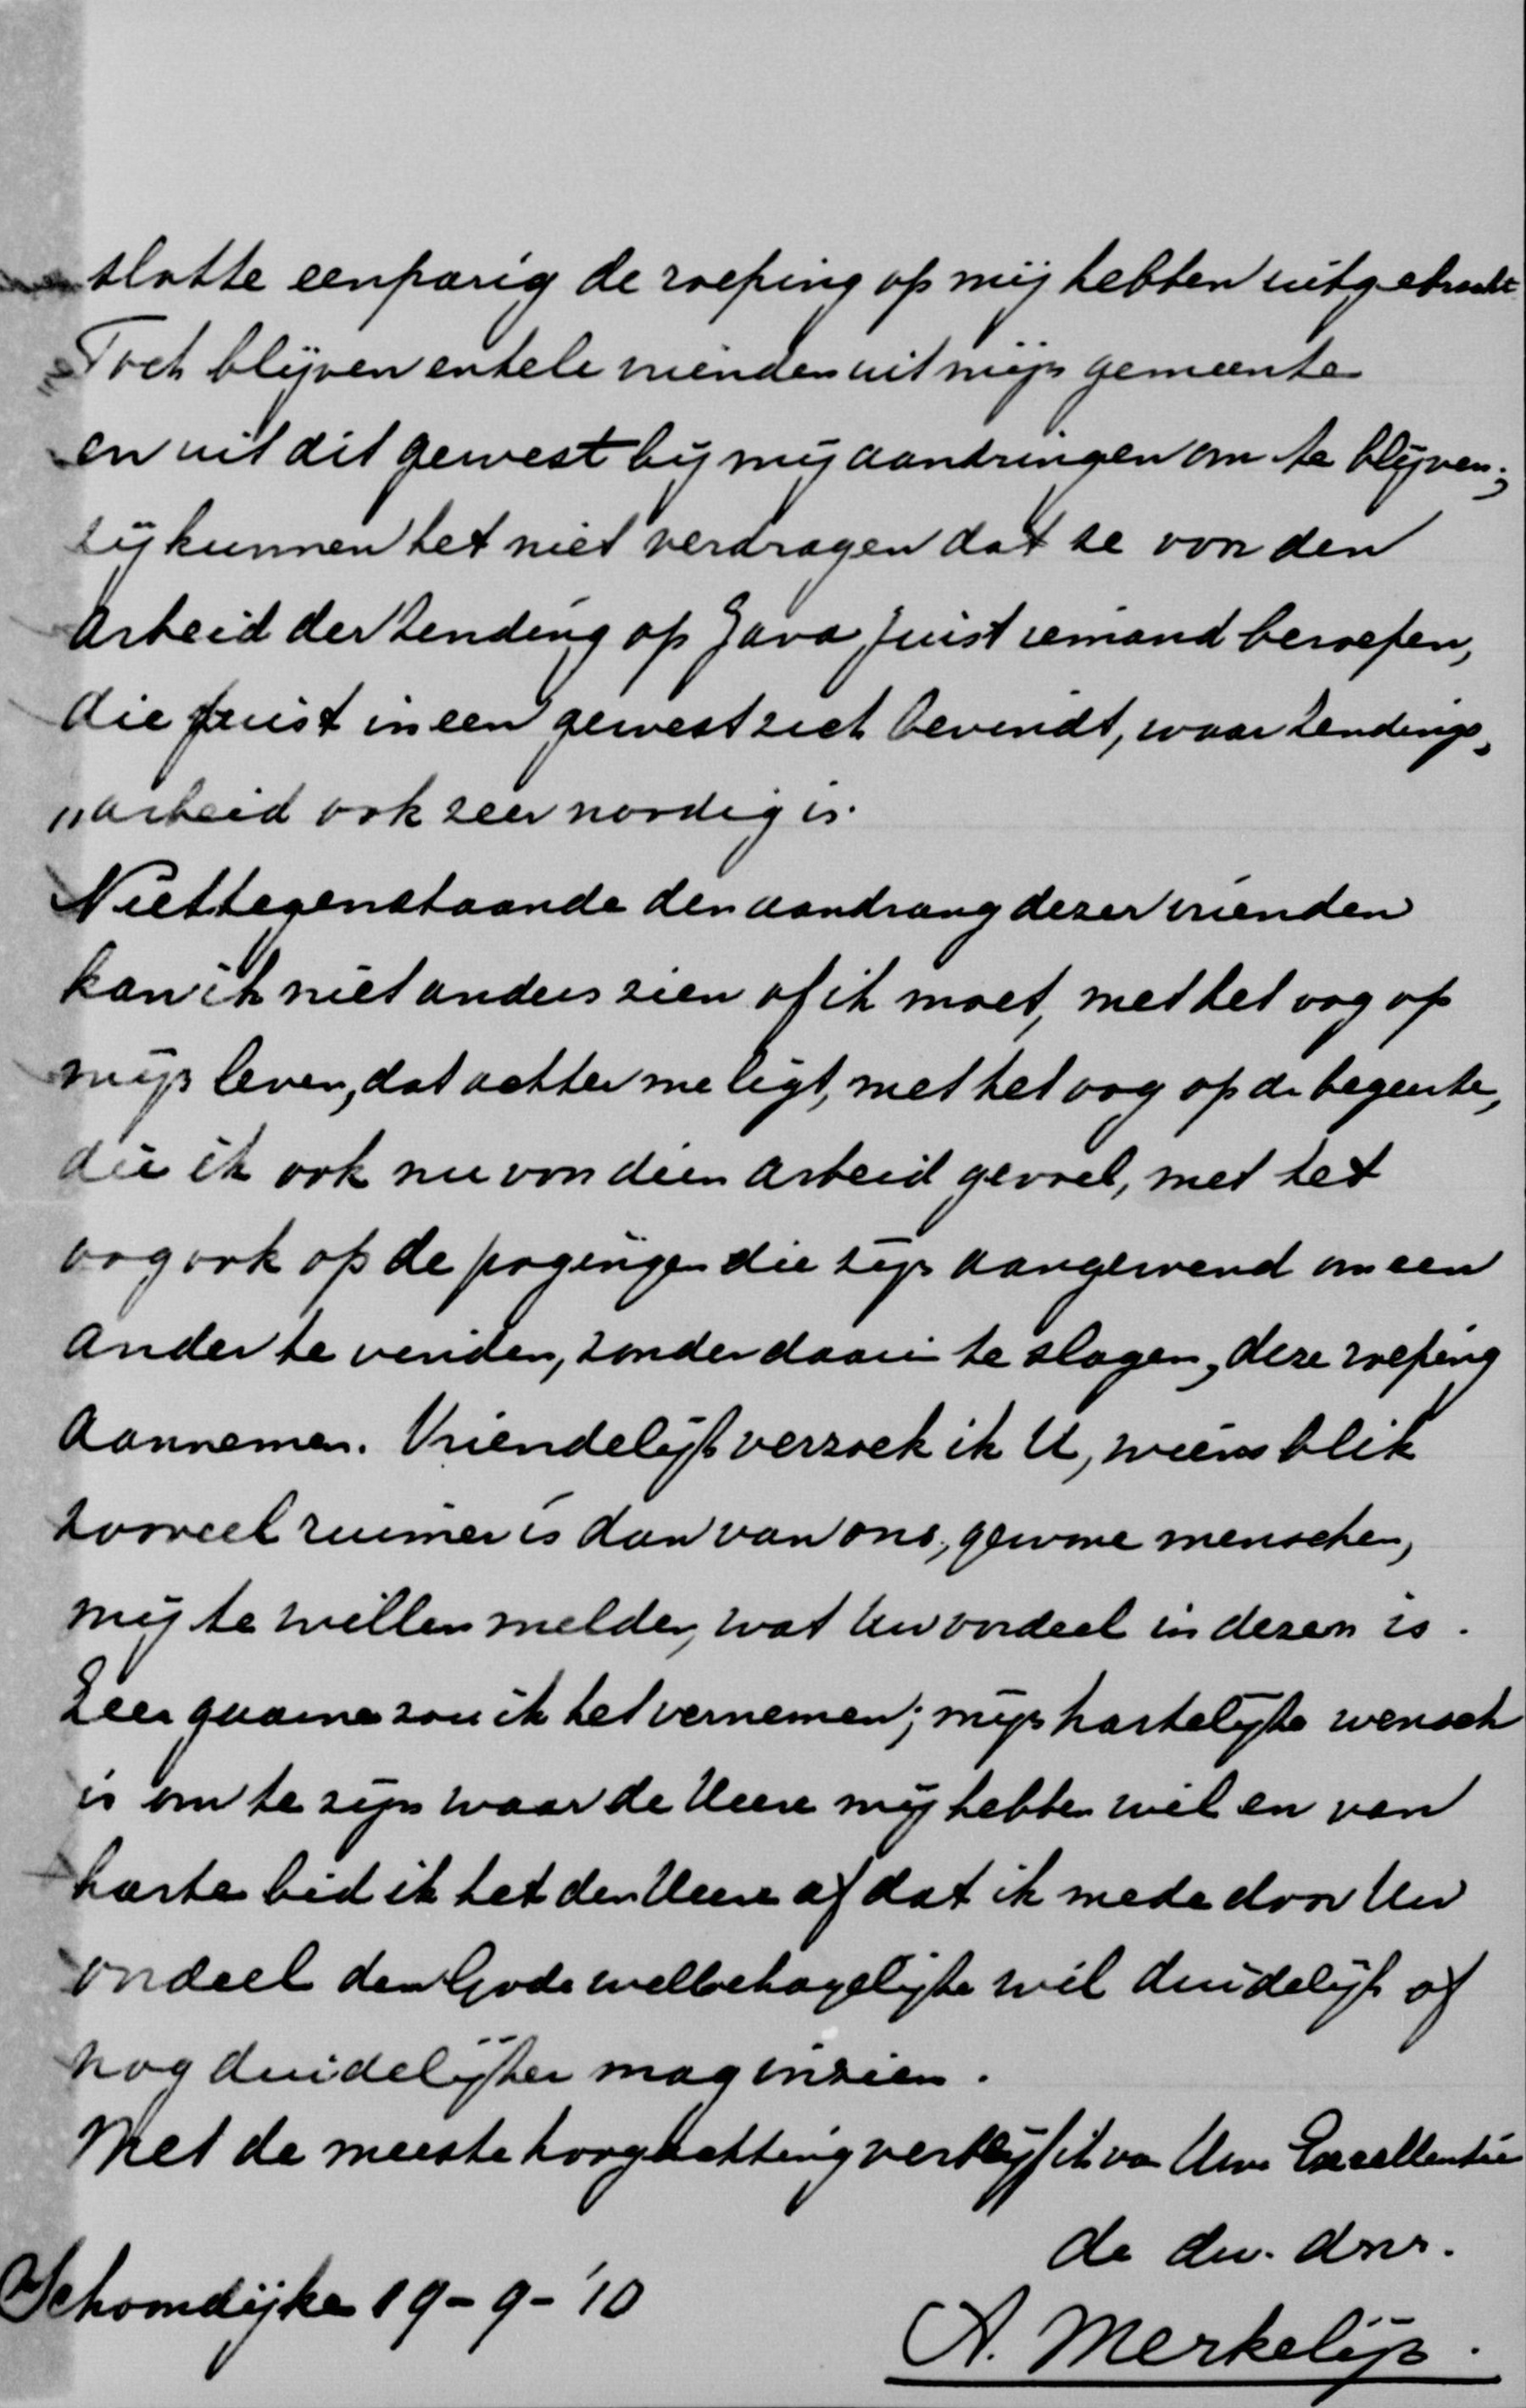 slotte eenparig de roeping op mij hebben uitgebracht
Toch blijven enkele vrienden uit mijn gemeente
en uit dit gewest bij mij aandringen om te blijven;
zij kunnen het niet verdragen dat ze voor den
arbeid der zending op Java juist iemand beroepen,
die juist in een gewest zich bevindt, waar zendings-
„arbeid ook zeer noodig is.
Niettegenstaande den aandrang dezer vrienden
kan ik niet anders zien of ik moet, met het oog op
mijn leven, dat achter me ligt, met het oog op de begeerte,
die ik ook nu voor dien arbeid gevoel, met het
oog ook op de pogingen die zijn aangewend om een
ander te vinden, zonder daarin te slagen, deze roeping
aannemen. Vriendelijk verzoek ik U, wiens blik
zooveel ruimer is dan van ons, gewone menschen,
mij te willen melden, wat Uw oordeel in dezen is.
Zeer gaarne zou ik het vernemen; mijn hartelijke wensch
is om te zijn waar de Heere mij hebben wil en van
harte bid ik het den Heere af dat ik mede door Uw
oordeel den Gode welbehagelijke wil duidelijk of
nog duidelijker mag inzien.
Met de meeste hoogachting verblijf ik van Uwe Excellentie
de dw. dnr.
Schoondijke 19-9-'10
A. Merkelijn.